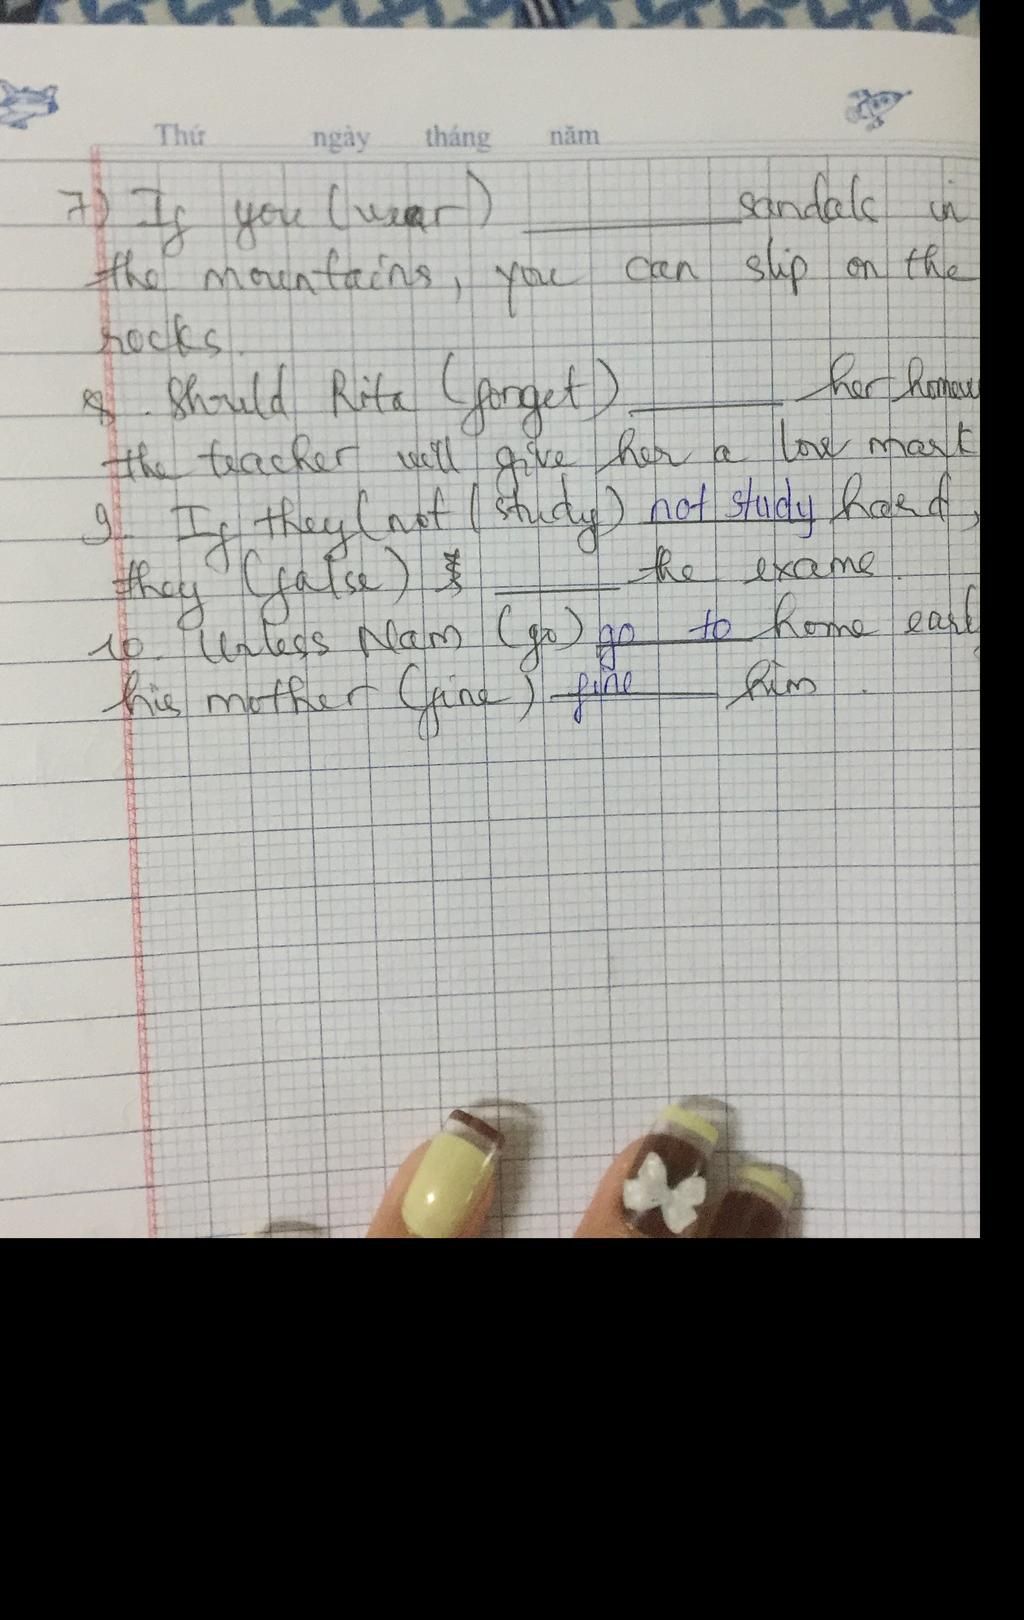 Thứ ngày tháng năm
7) If you (wear) ________ sandals in
the mountains, you can slip on the
rocks.
8. Should Rita (forget) ________ her homew
the teacher will give her a low mark
9. If they (not (study) not study hard,
they (false) ________ the exams.
10. Unless Nam (go) go to home earl
his mother (fine) fine him.